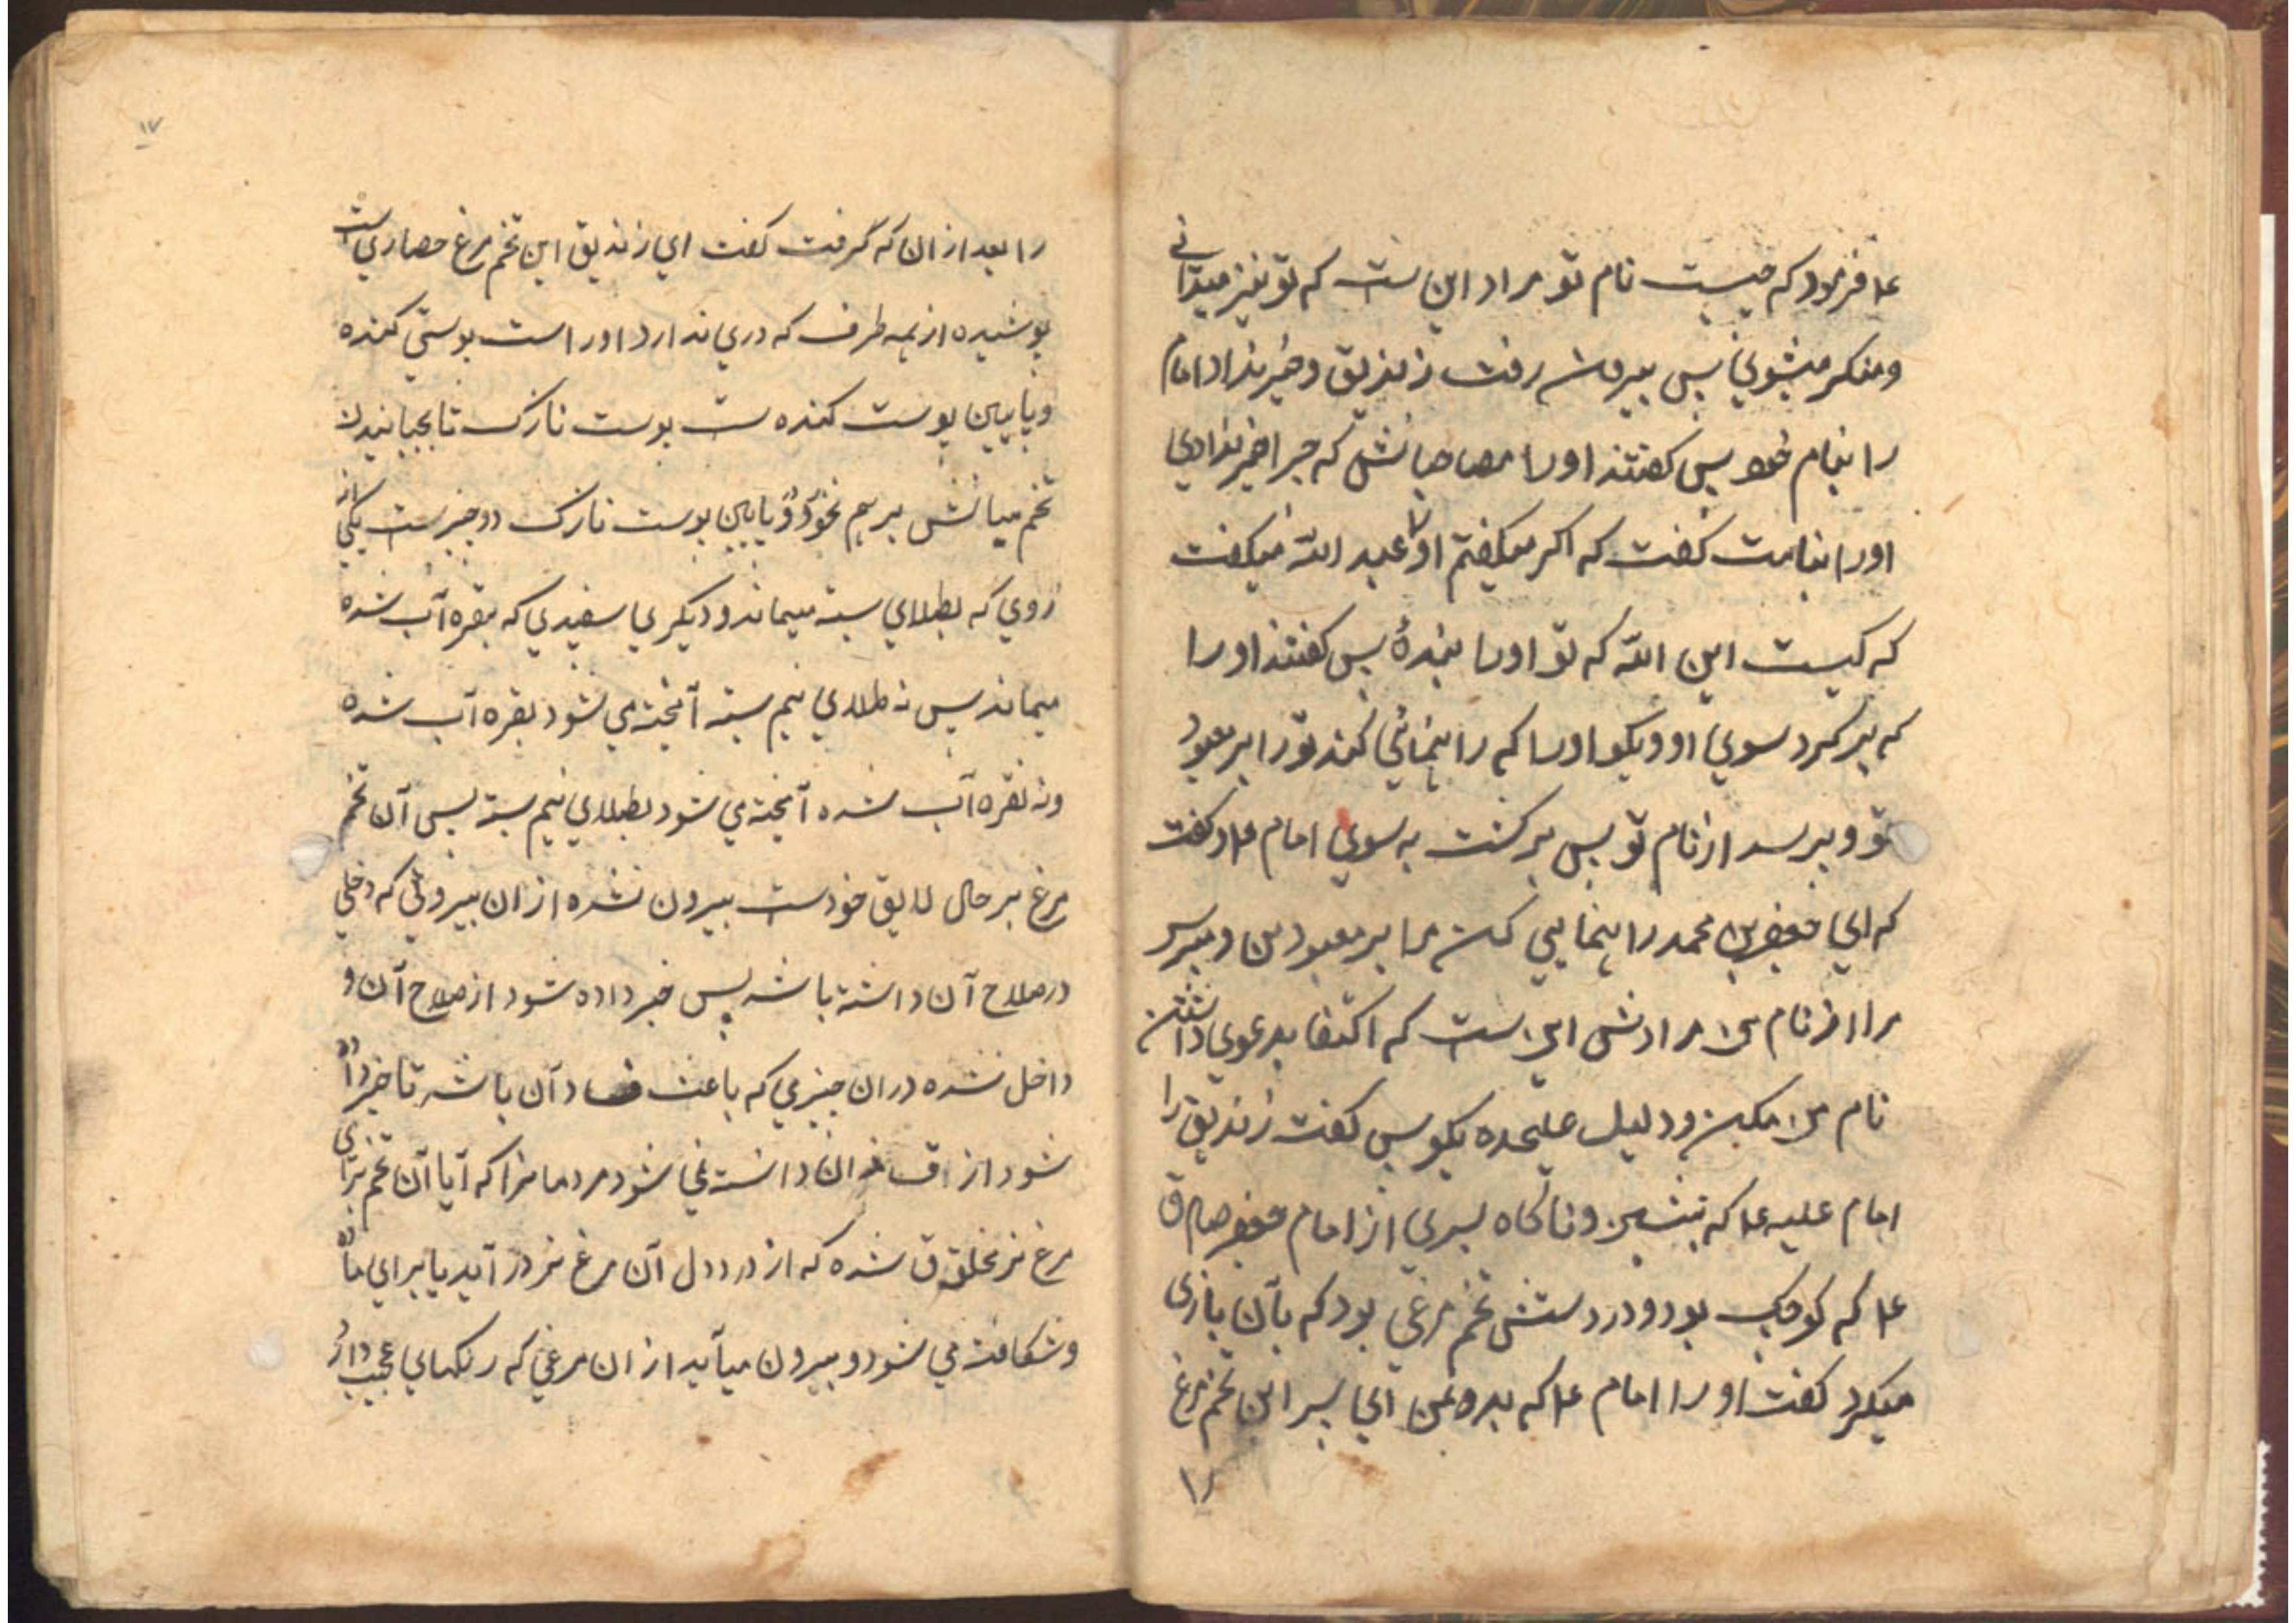 ع‍ا فرمود که چیست نام تو مراد این ست که تو نیز میدانی
و منکر میشوی پس بیرون رفت زندیق و خبر نداد امام
را بنام خود پس گفتند او را مصاحبانش که چرا خبر ندادی
او را بنامت گفت که اگر میگفتم او را عبد الله میگفت
که کیست این الله که تو او را بندۀ پس گفتند او را
که برگرد سوی او و بگو او را که راهنمائی کند تو را بر معبود
تو و نپرسد از نام تو پس برگشت به سوی امام ع‍ا و گفت
که ای جعفر بن محمد راهنمایی کن مرا بر معبود من و مپرس
مرا از نام من مرادش این ست که اکتفا بدعوی دانستن
نام من مکن و دلیل علیحده بگو پس گفت زندیق را
امام علیه ع‍ا که بنشین و ناگاه پسری از امام جعفر صادق
ع‍ا که کوچک بود و در دستش تخم مرغی بود که بآن بازی
میکرد گفت او را امام ع‍ا که بده بمن ای پسر این تخم مرغ
را
۱۷
را بعد از ان که گرفت گفت ای زندیق این تخم مرغ حصاری است
پوشیده از همه طرف که دری ندارد او را است پوستی کنده
و پایین پوست کنده ست پوست نازک تا بجنبانیدن
تخم میانش بر هم نخورد و پایین پوست نازک دو چیزست یکی از
زردی که بطلای بسته میماند و دیگری سفیدی که بنقره آب شده
میماند پس نه طلای نیم بسته آمیخته می شود بنقره آب شده
و نه نقره آب شده آمیخته می شود بطلای نیم بسته پس آن تخم
مرغ بر حال لایق خودست بیرون نشده از ان بیرونی که دخلی
در صلاح آن داشته باشد پس خبر داده شود از صلاح آن و
داخل نشده در ان چیزی که باعث فساد آن باشد تا خبر داده
شود از فساد ان دانسته نمی شود مردمانرا که آیا آن تخم برای
مرغ نر مخلوق شده که از در دل آن مرغ نر در آید یا برای ماده
و شکافته می شود و بیرون میآید از ان مرغی که رنگهای عجیب دارد